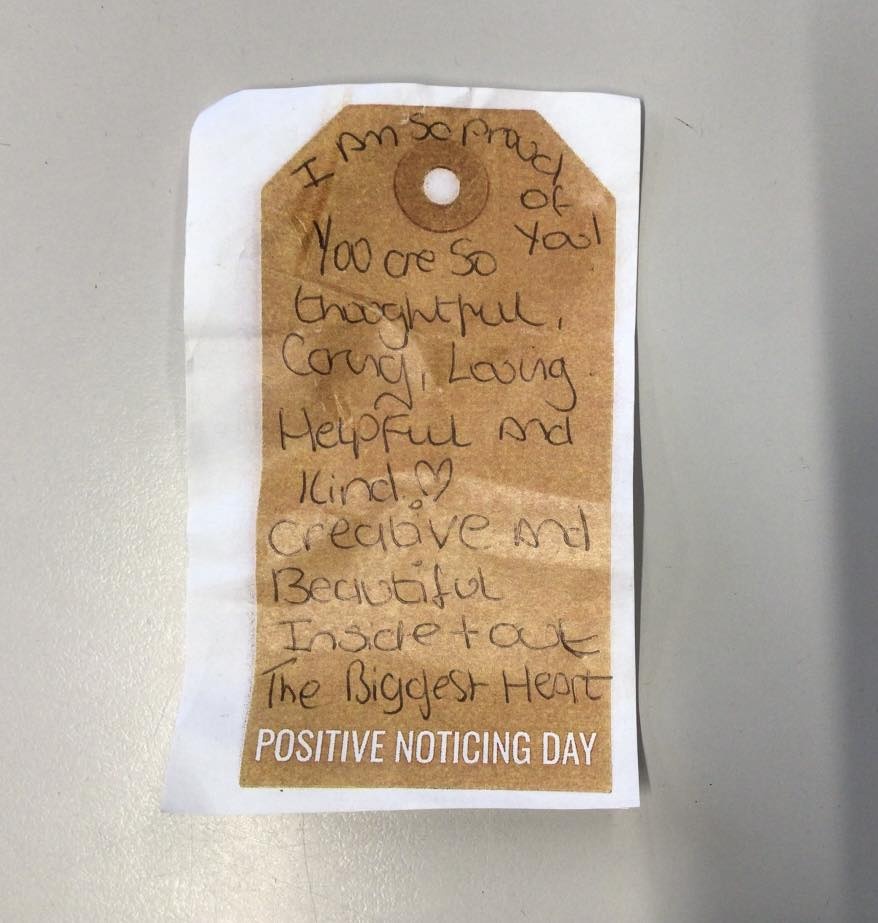 I Am So Proud
of
You!
You are So
thoughtful,
Caring, Loving
Helpful And
Kind.♡
Creative And
Beautiful
Inside + out
The Biggest Heart
POSITIVE NOTICING DAY